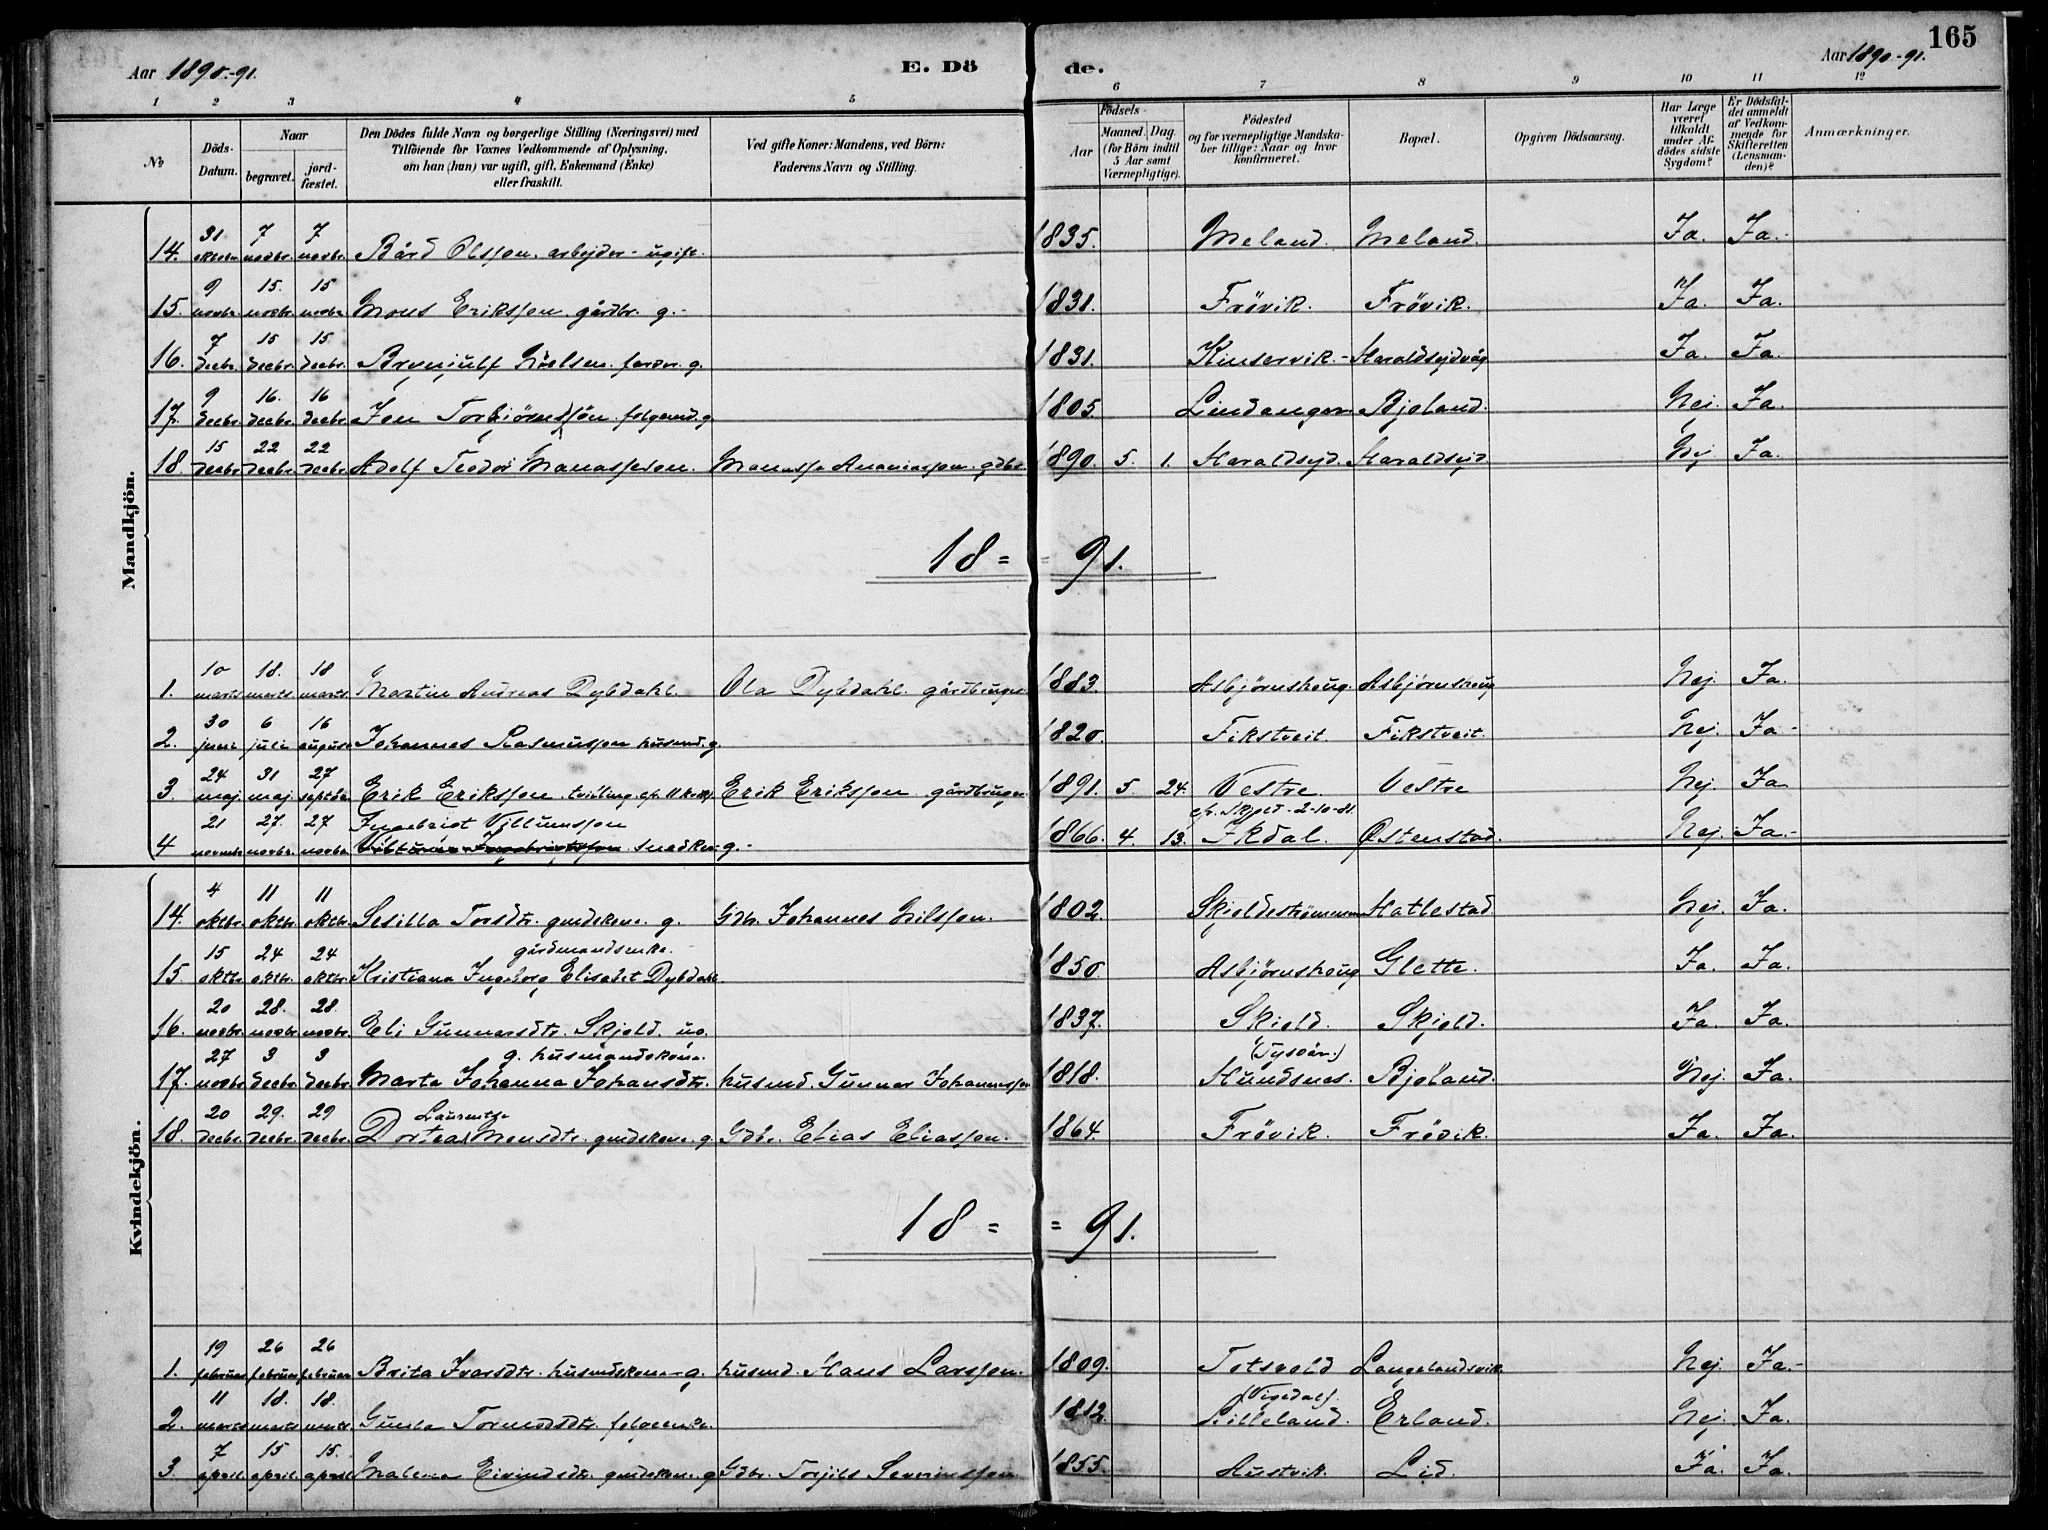 Aar 1890-91. E. Dö de. Aar 1890-91. 165
1 2 3 4 5 6 7 8 9 10 11 12
No
Döds-Datum.
Naar
begravet.
jord-fæstet.
Den Dödes fulde Navn og borgerlige Stilling (Næringsvei) med
Tilföiende for Voxnes Vedkommende af Oplysning,
om han (hun) var ugift, gift, Enkemand (Enke)
eller fraskilt.
Ved gifte Koner: Mandens, ved Börn:
Faderens Navn og Stilling.
Födsels-
Aar
Maaned. Dag.
(for Börn indtil
5 Aar samt
Værnepligtige).
Födested
og for værnepligtige Mandska-
ber tillige: Naar og hvor
konfirmeret.
Bopæl.
Opgiven Dödsaarsag.
Har Læge
været
tilkaldt
under Af-
dödes sidste
Sygdom?
Er Dödsfal-
det anmeldt
af Vedkom-
mende for
Skifteretten
(Lensman-
den)?
Anmærkninger.
Mandkjön.
14. 31 oktbr. 7 novbr. 7 novbr. Bård Olsson. arbejder - ugift. 1835. Meland. Meland. Ja. Ja.
15. 9 novbr. 15. novbr. 15 novbr. Mons Eriksson gårdbr. g. 1831. Frövik. Frövik. Ja. Ja.
16. 7 decbr. 15 decbr. 15 decbr. Brynjulf g. 1831. Kinservik. Haraldsejdvåg Ja. Ja.
17. 9 decbr. 16. decbr. 16 decbr. Jon Torbjörnsson g. 1805. Lindanger. Bjoland. Nej. Ja.
18. 15 decbr. 22 decbr. 22 decbr. Adolf Teodor Manassesen. Manasse Ananiassen. gdbr. 1890. 5. 1. Haraldsejd. Haraldsejd. Nej Ja.
18 = = 91.
1. 10 marts 18. marts 18 marts. Martin Andreas Dybdahl. Ola Dybdahl. gårdbruger 1883. Asbjörnshoug. Asbjörnshoug Nej. Ja.
2. 30 juni 6 juli 16 august Johannes Rasmusson husmd. g. 1820. Fikstveit. Fikstveit. Nej. Ja.
3. 24 maj. 31 maj. 27 septbr. Erik Eriksson tvilling Erik Eriksson gårdbruger. 1891. 5. 24. Vestre Vestre Nej. Ja
Ingebrigt Villumsson 2-10-81.
4 21 novembr. 27. novbr. 27 novbr. snedker g. 1866. 4. 13. Ølstenstad. Nej. Ja.
Kvindekjön.
14. 4 oktbr. 11 oktbr. 11 oktbr. Sesilla Torsdtr. gmdskone. g. Gdbr. Johannes Nilsson. 1802 Skjoldeströmmen Hatlestad Nej. Ja.
gårdmandsenke.
15. 15 oktbr. 24 oktbr. 24 oktbr. Kristiana Ingeborg Elisabet Dybdahl 1850 Asbjörnshoug Glette. Ja. Ja.
16. 20 novbr. 28. novbr. 28. novbr. Eli Gunnarsdtr. Skjold ug. 1837. Skjold. Skjold. Ja. Ja.
g. husmandskone. (Tysvær.)
17. 27 novbr. 3 decbr. 3 decbr. Marta Johanna Johansdtr. husmd. Gunnar Johannesson 1818. Hundsnes. Bjoland. Nej. Ja.
Laurentse
18. 20 decbr. 29. decbr. 29 decbr. Dortea Monsdtr. gmdskone. g. Gdbr. Elias Eliasson. 1864. Frövik. Frövik. Ja. Ja.
18 = = 91.
1. 19 februar 26 februar 26 februar Brita Ivarsdtr. husmdskone g. husmd. Hans Larsson. 1809. Totsvold Langelandsvik Nej. Ja.
(Vigedal).
2. 11 marts 18. marts 18. marts Gunla Tormodsdtr. folgeenke. 1812. Lilleland. Erland. Nej. Ja.
3. 7 april. 15 april. 15. april Malena Eivindsdtr. gmdskone. g Gdbr. Torjils Severinsson 1855. Austvik. Lid. Ja. Ja.